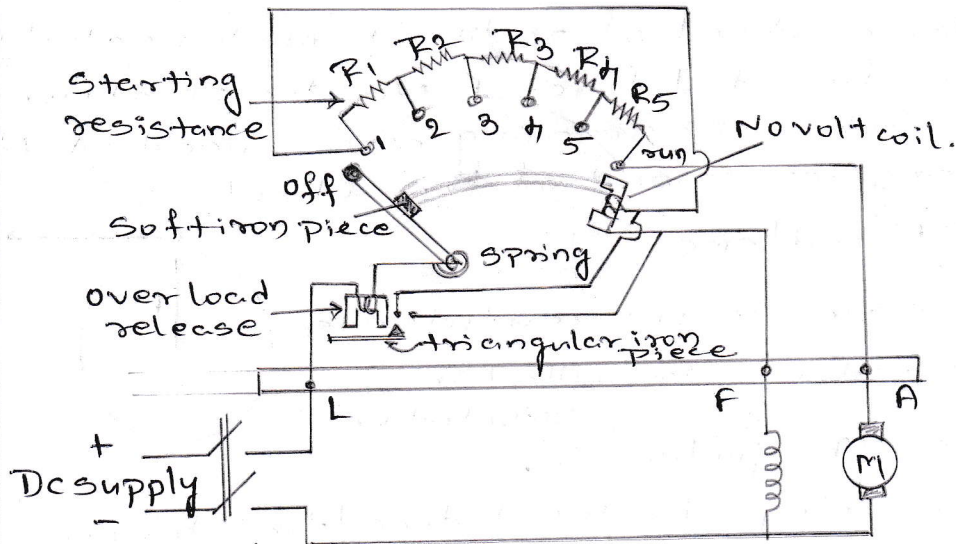 R1 R2 R3 R4 R5
Starting
resistance
1 2 3 4 5 run
No volt coil.
off
Soft iron piece
Spring
over load
release
triangular iron
piece
L F A
+
Dc supply
-
M